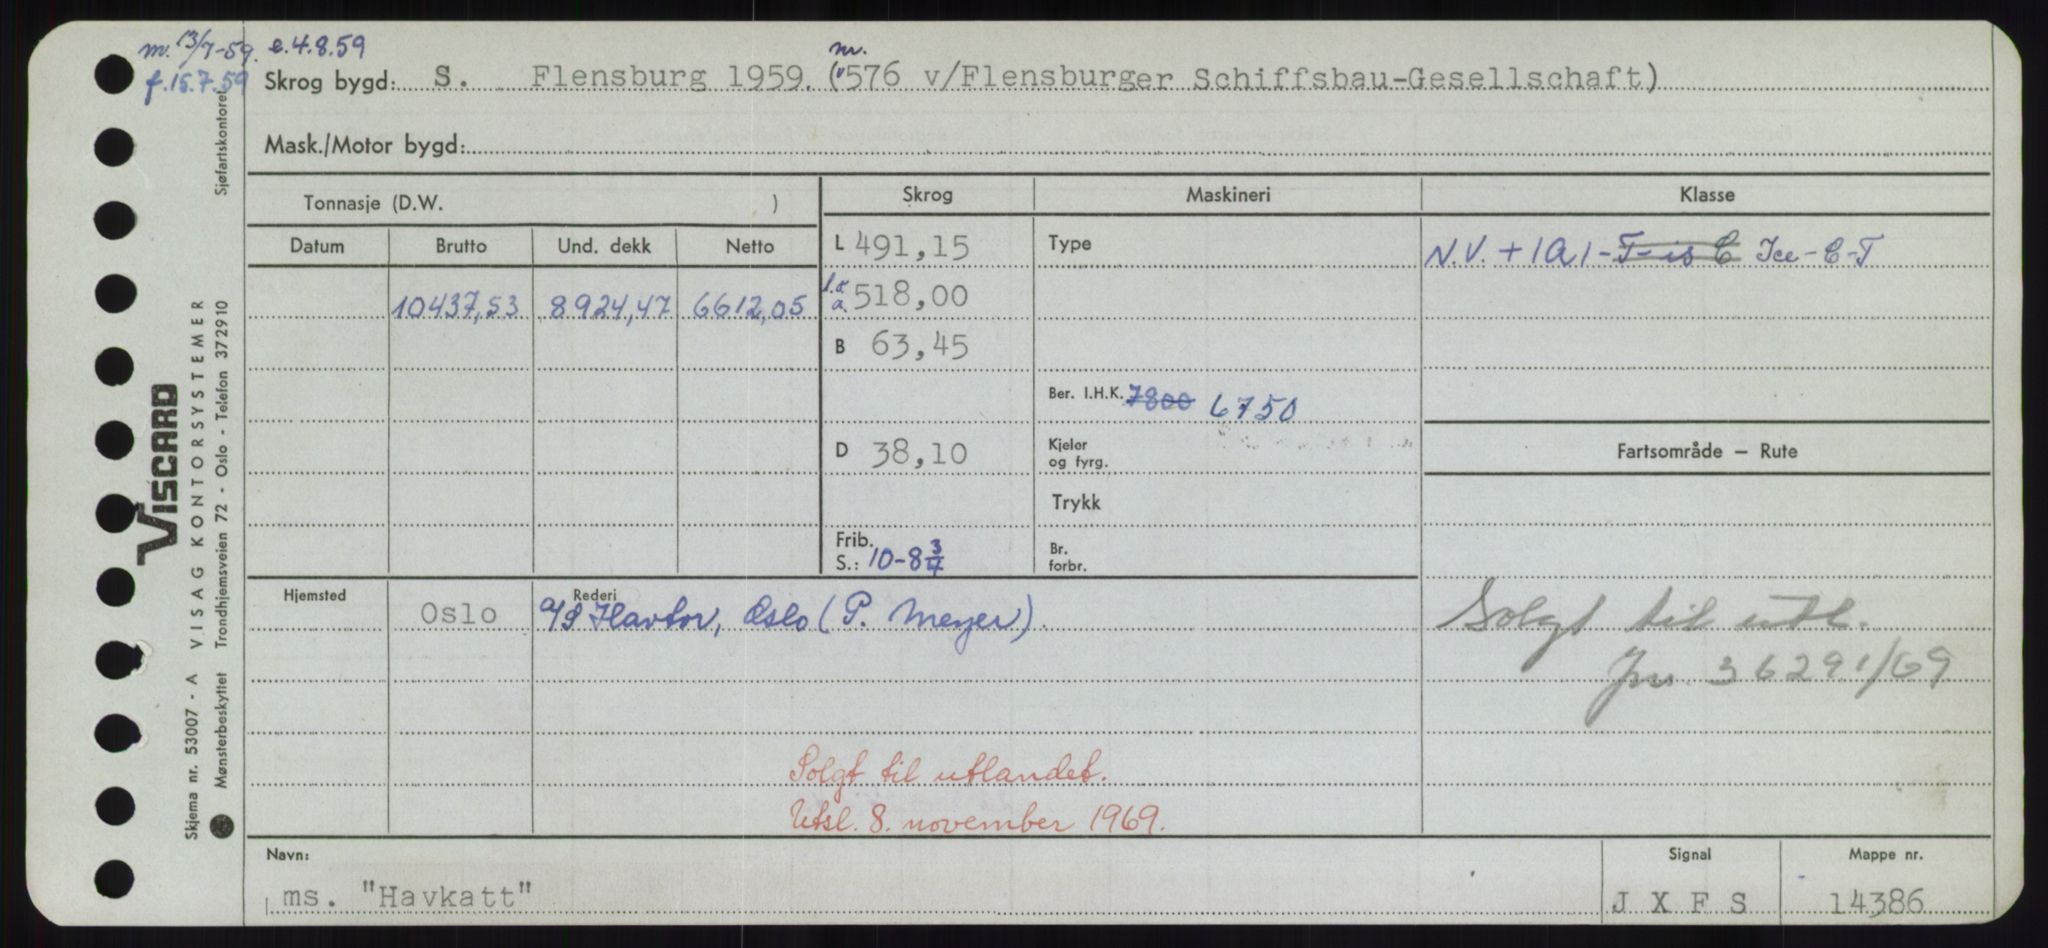 m. 13/7-59. e.4.8.59
f.15.7.59
nr.
Skrog bygd: S. Flensburg 1959. (576 v/Flensburger Schiffsbau-Gesellschaft)
Mask./Motor bygd:
Tonnasje (D.W. ) Skrog Maskineri Klasse
Datum Brutto Und. dekk Netto L 491,15 Type N.V. + 1A1 - T-is C Ice-C-T
10437,53 8924,47 6612,05 l.o.a. 518,00
B 63,45
Ber. I.H.K. 7800 6750
D 38,10 Kjeler og fyrg. Fartsområde – Rute
Trykk
Frib. S.: 10-8 3/4 Br. forbr.
Hjemsted Oslo Rederi A/S Havtor, Oslo (P. Meyer)
Solgt til utl.
Jnr. 36291/69
Solgt til utlandet.
Utsl. 8. november 1969.
Navn: Signal Mappe nr.
ms. "Havkatt" J X F S 14386
VISCARD
Skjema nr. 53007 - A VISAG KONTORSYSTEMER
Mønsterbeskyttet Trondhjemsveien 72 - Oslo - Telefon 372910 Sjøfartskontoret